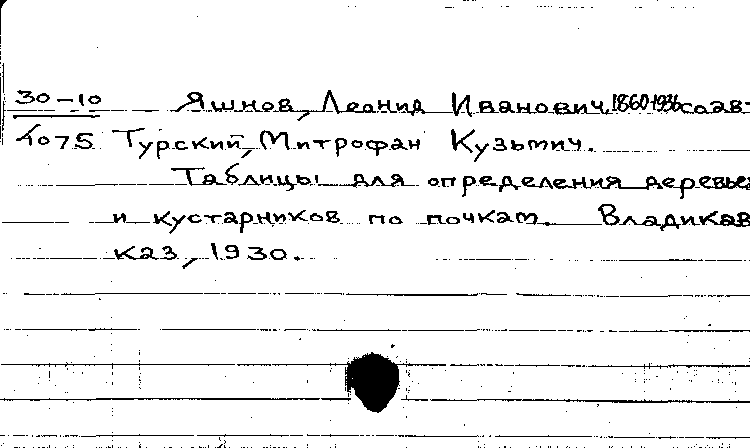 30-10 Яшнов, Леонид Иванович, 1860-1936 соавт
4075 Турский, Митрофан Кузьмич.
Таблицы для определения деревьев
и кустарников по почкам. Владикав
каз, 1930.